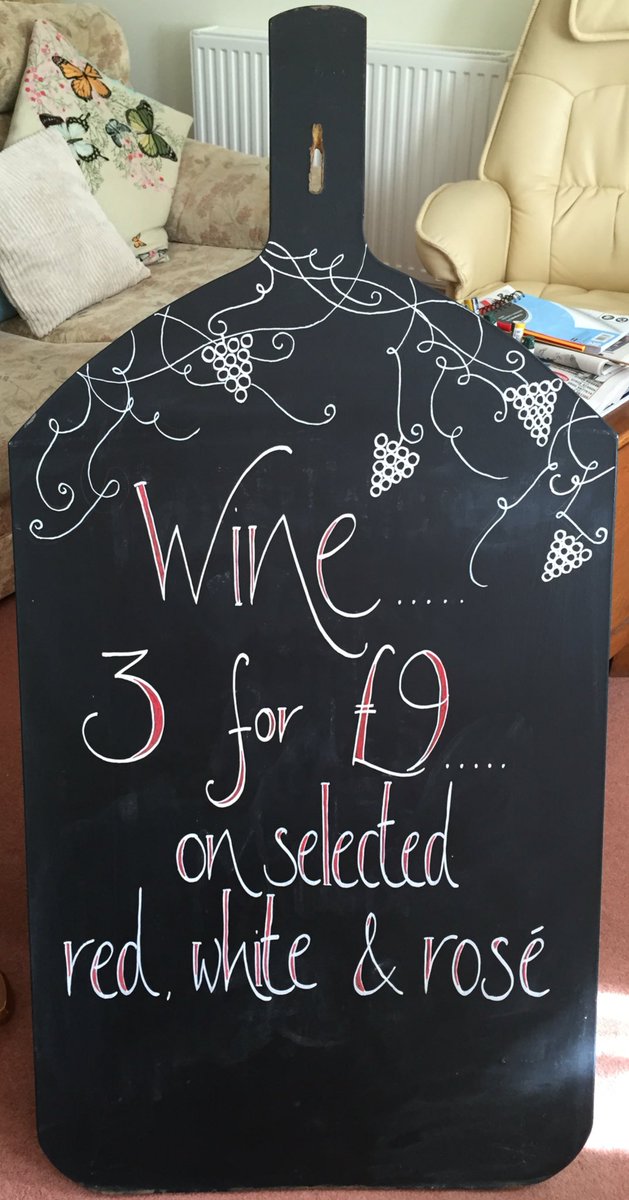 Wine.....
3 for £9.....
on selected
red, white & rosé